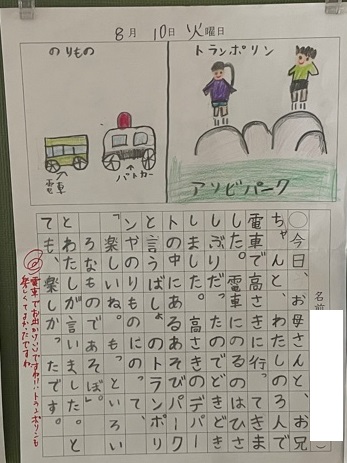 8月10日火曜日
のりもの
トランポリン
電車
パトカー
アソビパーク
名前
○今日、お母さんと、お兄
ちゃんと、わたしの3人で
電車で高さきに行ってきま
した。電車にのるのはひさ
しぶりだったのでどきどき
しました。高さきのデパー
トの中にあるあそびパーク
と言うばしょのトランポリ
ンやのりものにのって、
「楽しいね。もっといろい
ろなものであそぼ。」
とわたしが言いました。と
ても、楽しかったです。
電車でお出かけいいですね!!トランポリンも